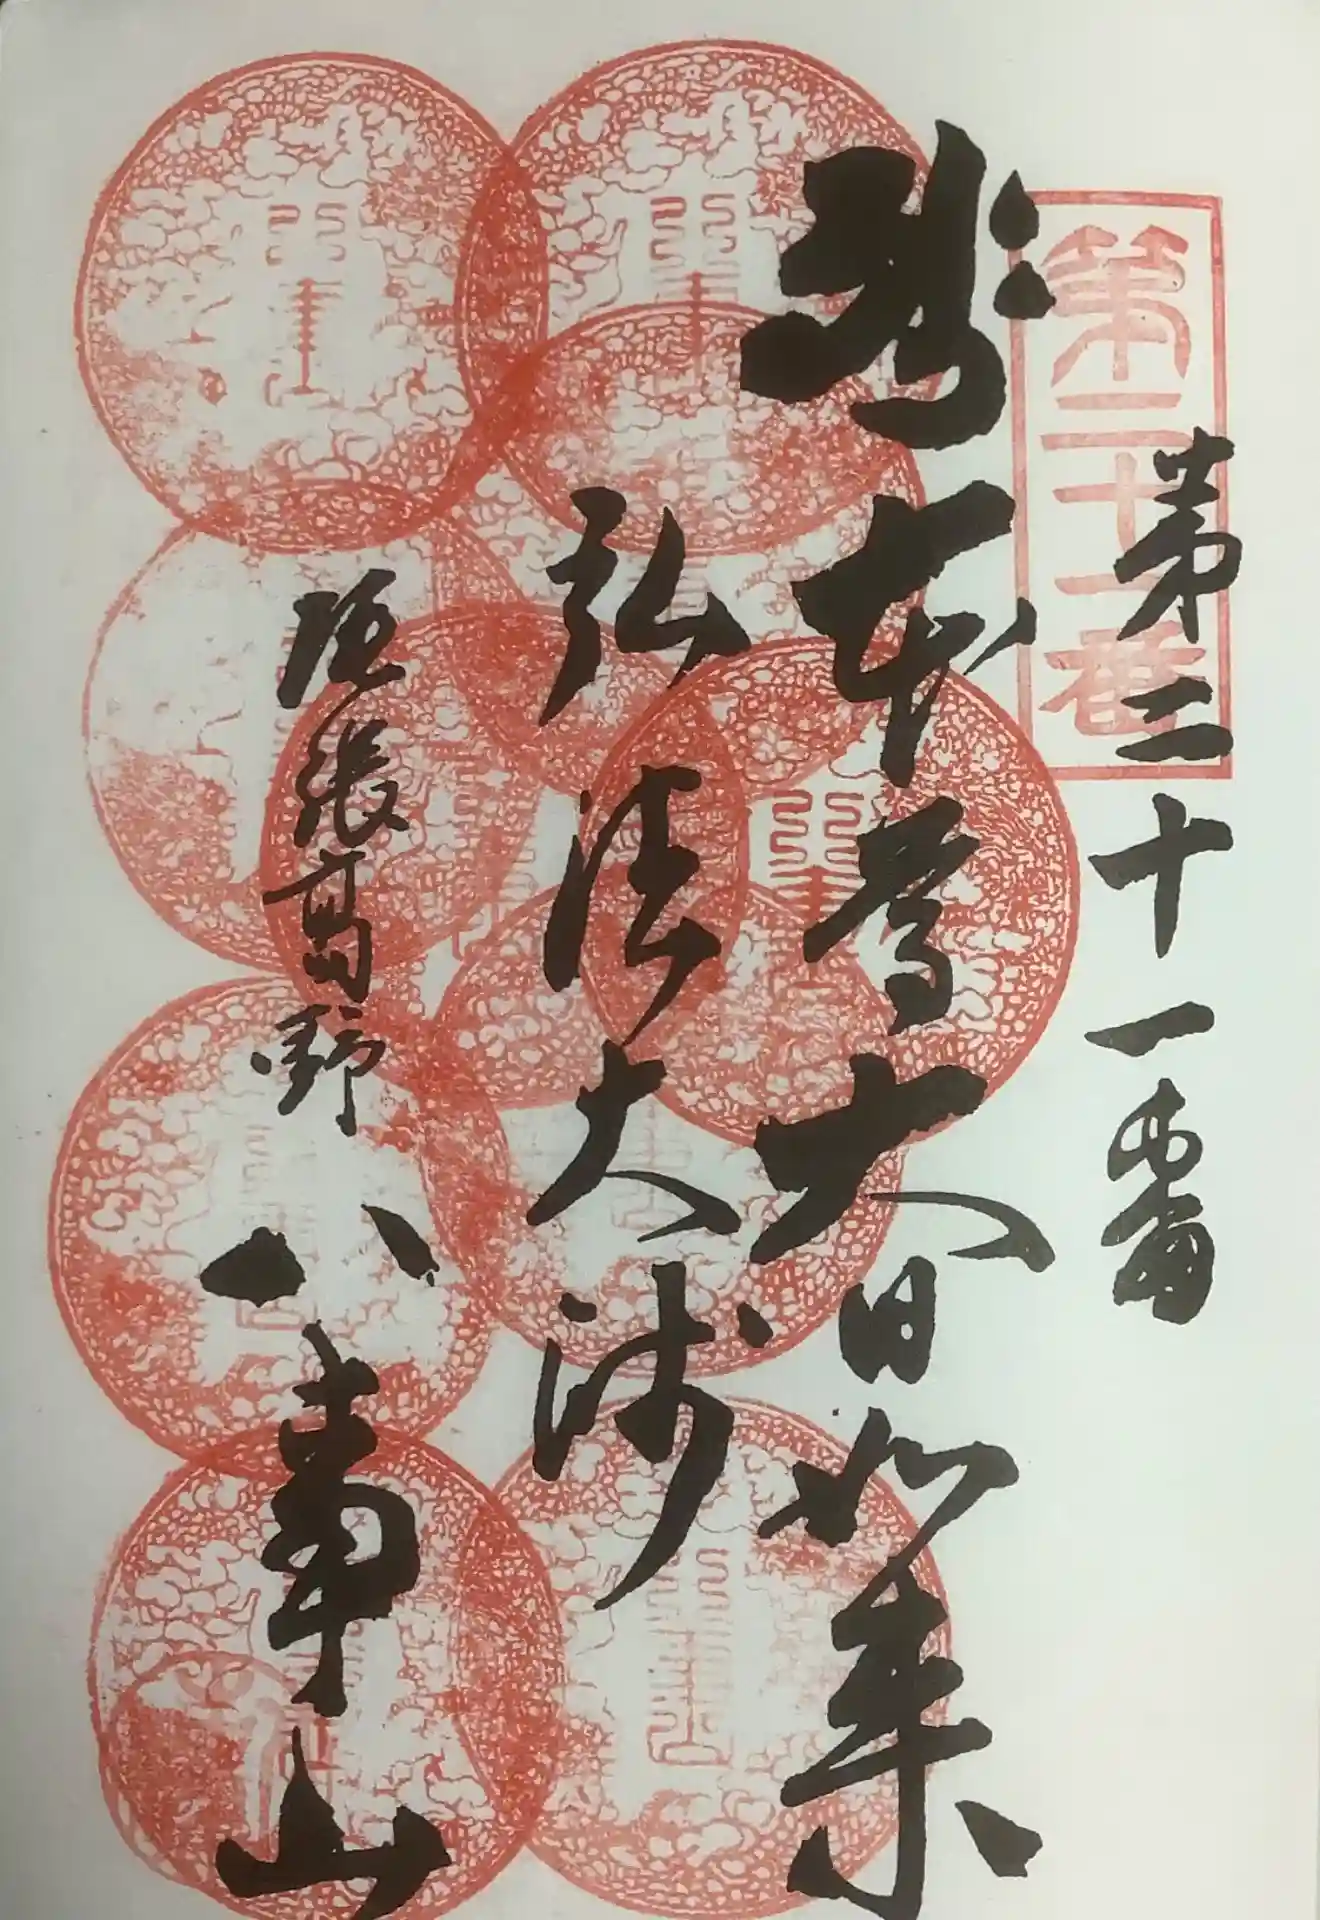 第二十一番
第二十一番
本尊大日如来
弘法大师
尾張高野
八事山